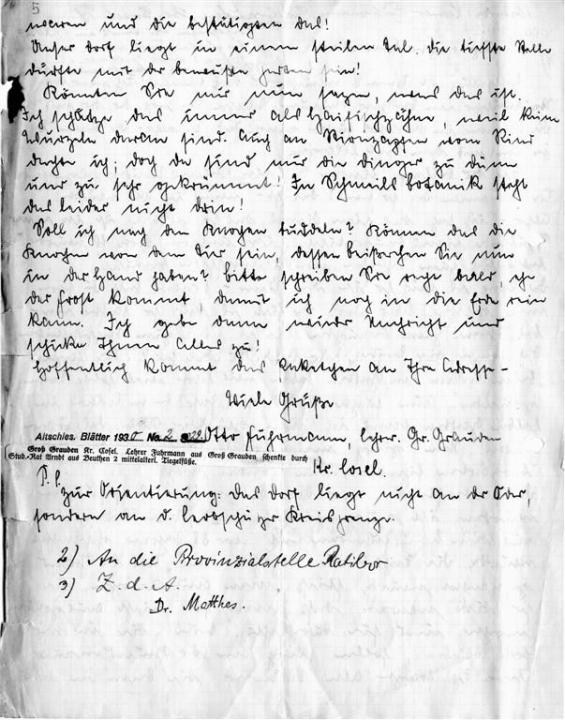 5
waren und die bestätigten das!
Unser Dorf liegt in einem steilen Tal. Die tiefste Stelle
dürfte mit der bewußte sein!
Könnten Sie mir nun sagen, was das ist.
Ich schätze das immer als Haifischzähne, weil keine
Wurzeln daran sind. Auch an vom Rind
dachte ich; doch da sind mir die Dinger zu dünn
und zu sehr gekrümmt! In Schmeils Botanik steht
das leider nicht drin!
Soll ich nach den Knochen buddeln? Können das die
Knochen von dem Tier sein, dessen Beißerchen Sie nun
in der Hand haben? Bitte schreiben Sie recht bald, ehe
der Frost kommt, damit ich noch in die Erde rein
kann. Ich gebe dann wieder Nachricht und
schicke Ihnen alles zu!
Hoffentlich kommt das Paketchen an Ihre Adresse –
Viele Grüße
Altschles. Blätter 1930 No. 2 S 22 Otto Fuhrmann, Lehrer. Gr. Grauden
Groß Grauden Kr. Cosel. Lehrer Fuhrmann aus Groß Grauden schenkte durch
Stud.-Rat Arndt aus Beuthen 2 mittelalterl. Tiegelfüße.
Kr. Cosel.
P.S.
Zur Orientierung: Das Dorf liegt nicht an der Oder,
sondern an d. Leobschützer Kreisgrenze.
2) An die Provinzialstelle Ratibor
3) Z. d. A.
Dr. Matthes.